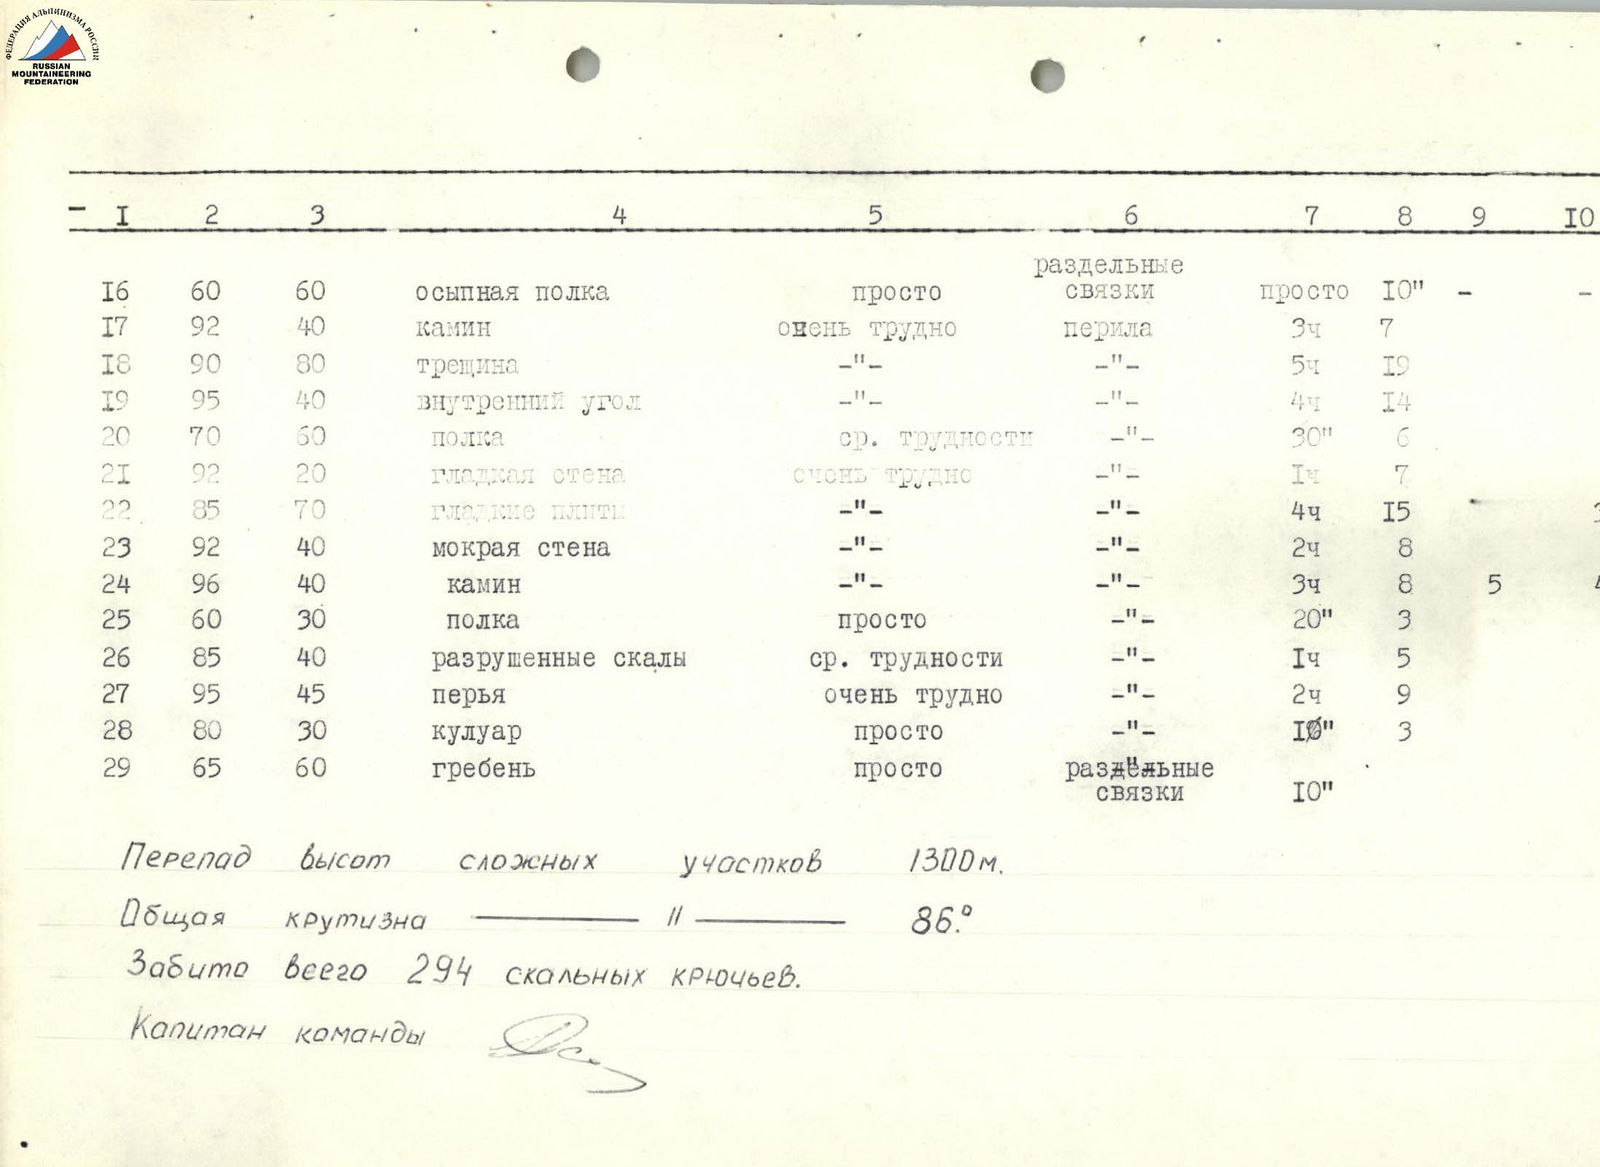 ФЕДЕРАЦИЯ АЛЬПИНИЗМА РОССИИ
RUSSIAN
MOUNTAINEERING
FEDERATION
I 2 3 4 5 6 7 8 9 IO
раздельные
I6 60 60 осыпная полка просто связки просто IO" - -
I7 92 40 камин очень трудно перила 3ч 7
I8 90 80 трещина -"- -"- 5ч I9
I9 95 40 внутренний угол -"- -"- 4ч I4
20 70 60 полка ср. трудности -"- 30" 6
2I 92 20 гладкая стена очень трудно -"- Iч 7
22 85 70 гладкие плиты -"- -"- 4ч I5
23 92 40 мокрая стена -"- -"- 2ч 8
24 96 40 камин -"- -"- 3ч 8 5
25 60 30 полка просто -"- 20" 3
26 85 40 разрушенные скалы ср. трудности -"- Iч 5
27 95 45 перья очень трудно -"- 2ч 9
28 80 30 кулуар просто -"- I0" 3
29 65 60 гребень просто раздельные
связки IO"
Перепад высот сложных участков 1300м.
Общая крутизна —— 〃 —— 86.°
Забито всего 294 скальных крючьев.
Капитан команды